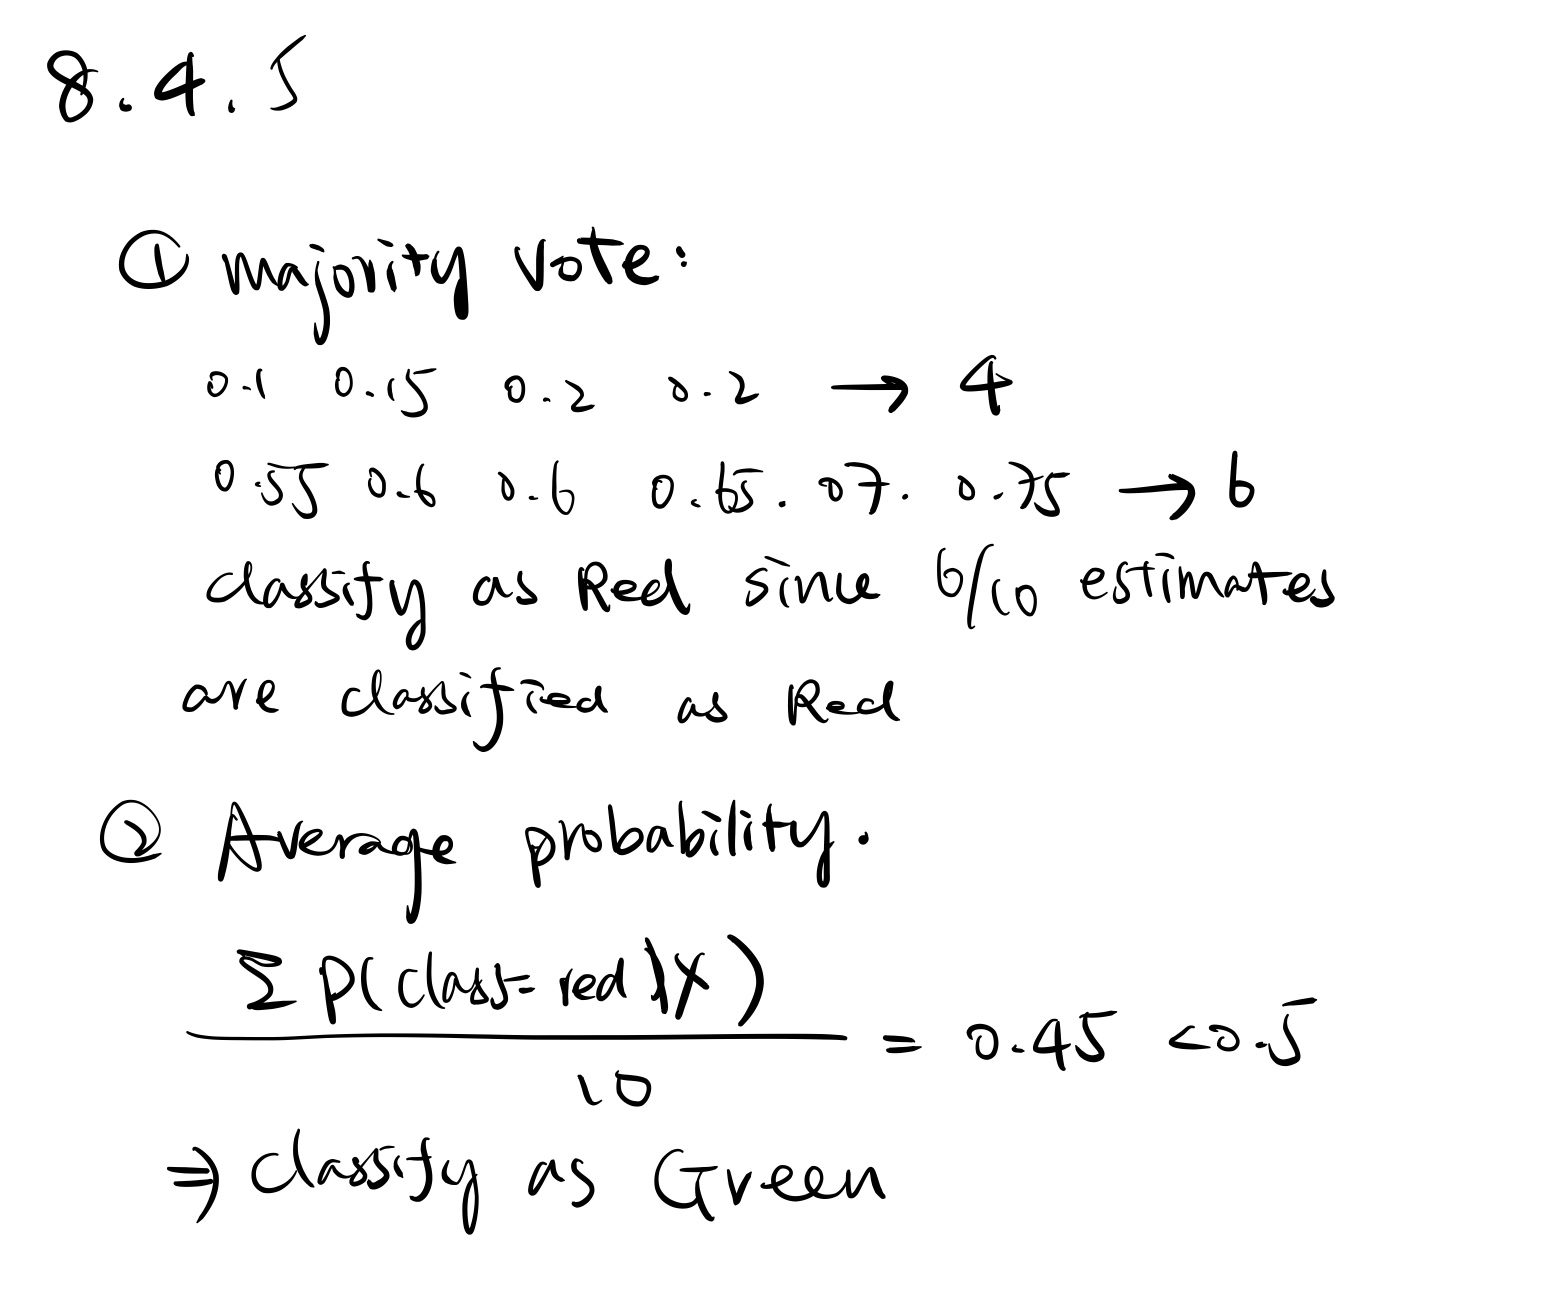 8.4.5
① majority vote:
0.1 0.15 0.2 0.2 → 4
0.55 0.6 0.6 0.65. 07. 0.75 → 6
classify as Red since 6/10 estimates
are classified as Red
② Average probability.
Σ P(class=red|X)
10
= 0.45 <0.5
⇒ classify as Green